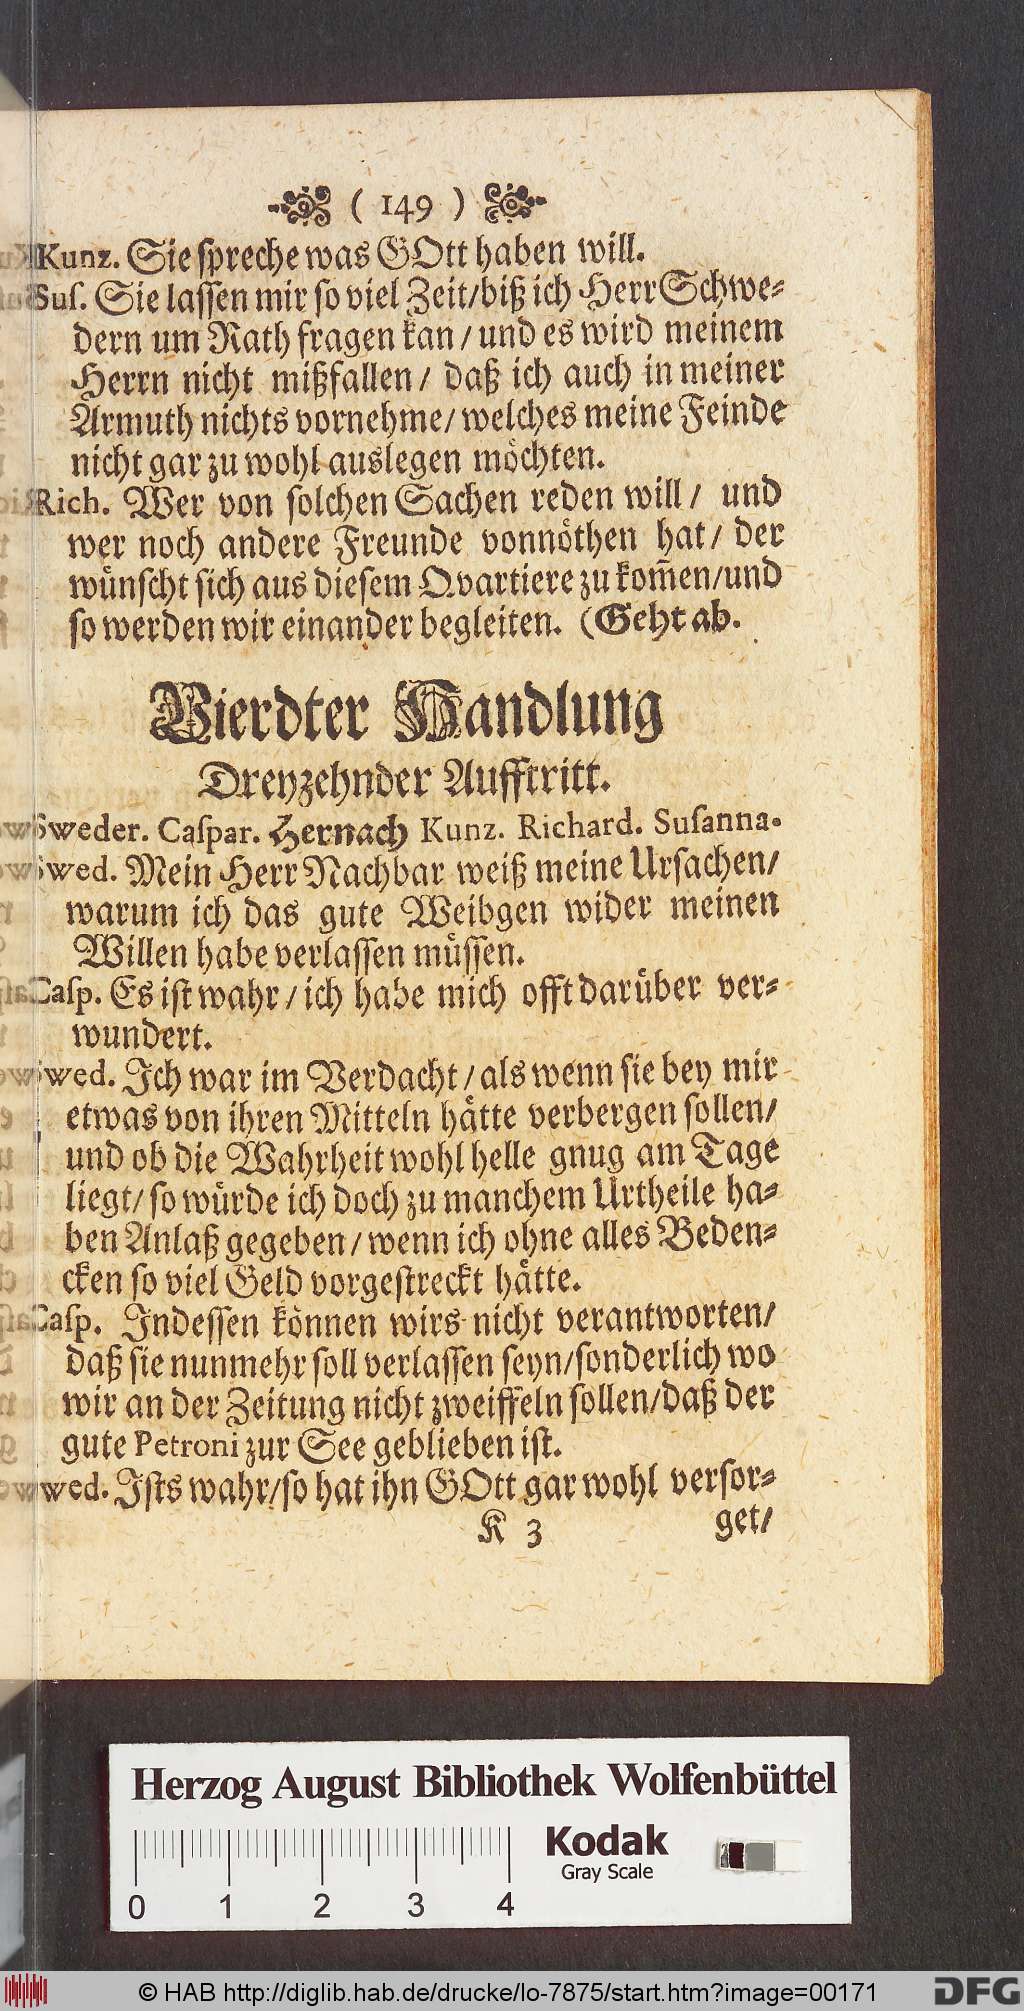 ( 149 )
Kunz. Sie spreche was GOtt haben will.
Sus. Sie lassen mir so viel Zeit/biß ich Herr Schwe-
dern um Rath fragen kan / und es wird meinem
Herrn nicht mißfallen / daß ich auch in meiner
Armuth nichts vornehme/ welches meine Feinde
nicht gar zu wohl auslegen möchten.
Rich. Wer von solchen Sachen reden will / und
wer noch andere Freunde vonnöthen hat / der
wünscht sich aus diesem Qvartiere zu kom̃en/und
so werden wir einander begleiten. (Geht ab.
Vierdter Handlung
Dreyzehnder Aufftritt.
Sweder. Caspar. Hernach Kunz. Richard. Susanna.
Swed. Mein Herr Nachbar weiß meine Ursachen/
warum ich das gute Weibgen wider meinen
Willen habe verlassen müssen.
Casp. Es ist wahr / ich habe mich offt darüber ver-
wundert.
Swed. Ich war im Verdacht / als wenn sie bey mir
etwas von ihren Mitteln hätte verbergen sollen/
und ob die Wahrheit wohl helle gnug am Tage
liegt/ so würde ich doch zu manchem Urtheile ha-
ben Anlaß gegeben / wenn ich ohne alles Beden-
cken so viel Geld vorgestreckt hätte.
Casp. Indessen können wirs nicht verantworten/
daß sie nunmehr soll verlassen seyn/sonderlich wo
wir an der Zeitung nicht zweiffeln sollen/daß der
gute Petroni zur See geblieben ist.
Swed. Ists wahr/so hat ihn GOtt gar wohl versor-
K 3 get/
Herzog August Bibliothek Wolfenbüttel
Kodak
Gray Scale
0 1 2 3 4
© HAB http://diglib.hab.de/drucke/lo-7875/start.htm?image=00171
DFG